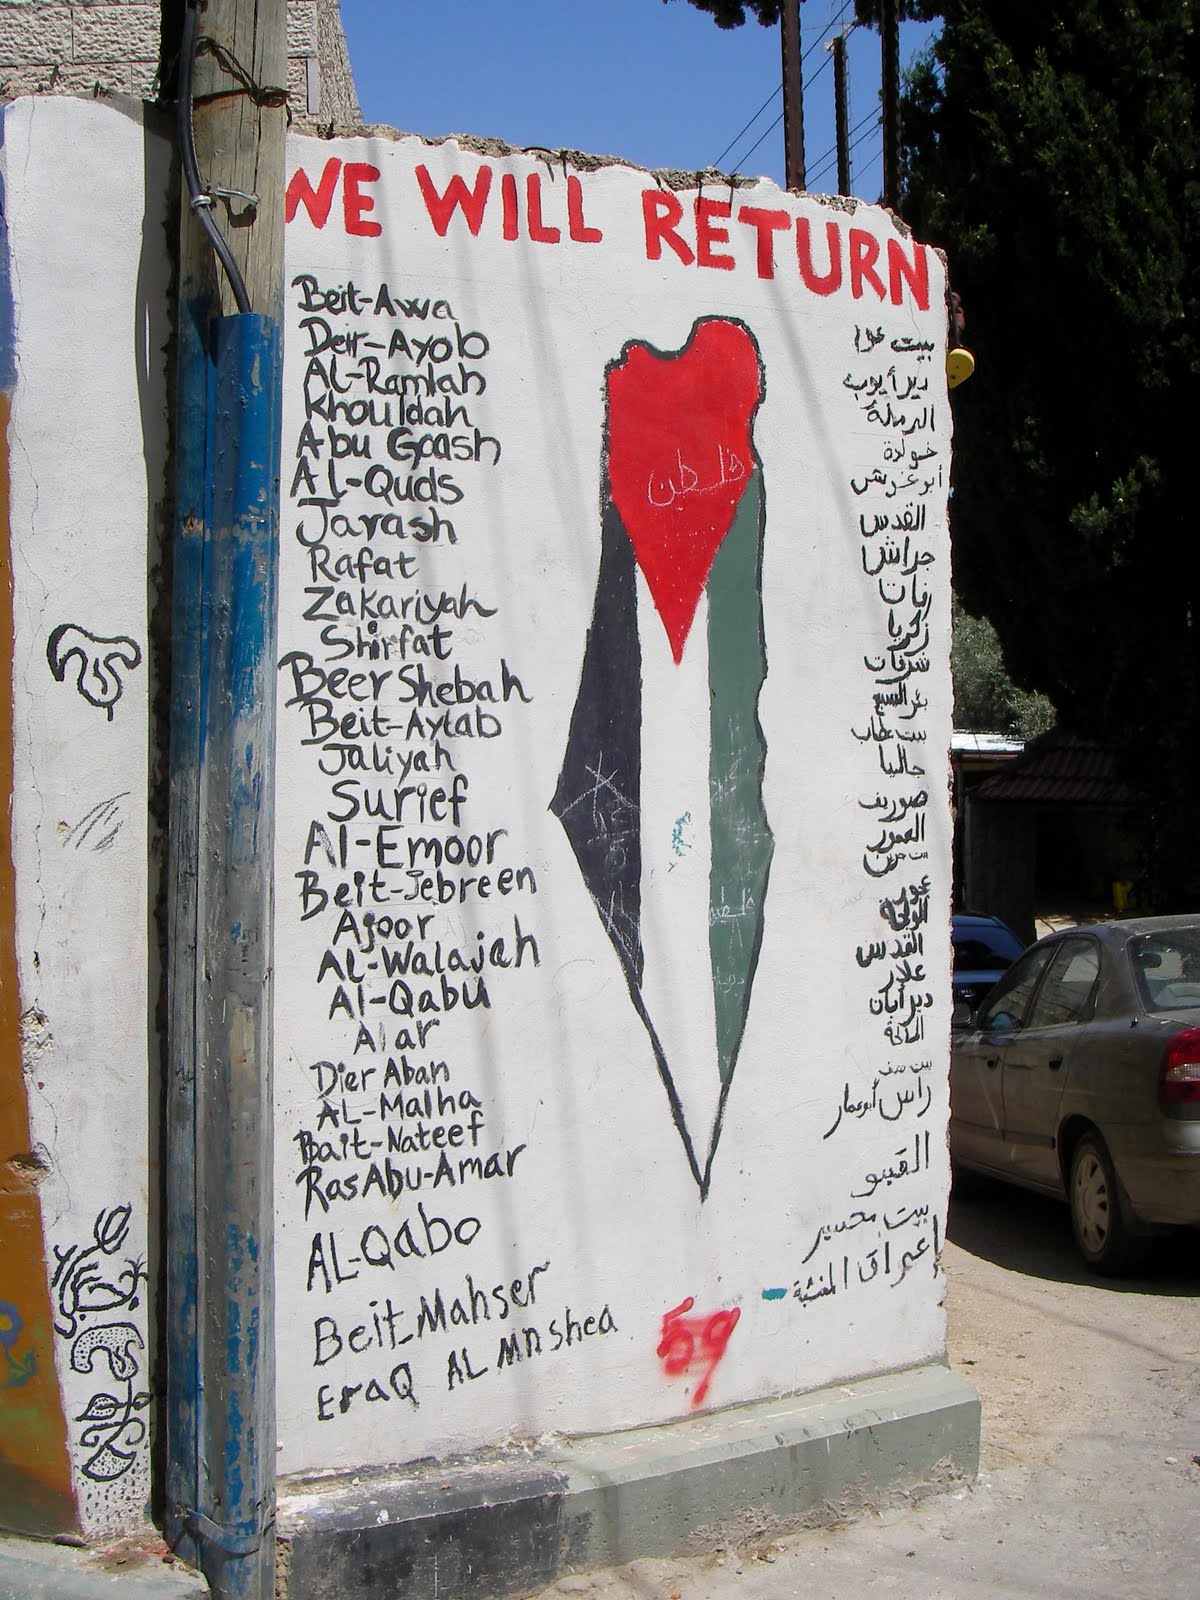 WE WILL RETURN
Beit-Awa
Deir-Ayob
Al-Ramlah
Khouldah
Abu Goash
Al-Quds
Jarash
Rafat
Zakariyah
Shirfat
Beer Shebah
Beit-Aytab
Jaliyah
Surief
Al-Emoor
Beit-Jebreen
Ajoor
Al-Walajeh
Al-Qabu
Alar
Dier Aban
AL-Malha
Bait-Nateef
Ras Abu-Amar
AL-Qabo
Beit-Mahser
EraQ AL Mnshea
فلسطين
بيت عوا
دير أيوب
الرملة
خولدة
أبو غوش
القدس
جراش
رفات
زكريا
شرفات
بئر السبع
بيت عطاب
جاليا
صوريف
العمور
بيت جبرين
عجور
الولجة
القدس
علار
دير أبان
المالحة
بيت نتيف
راس أبو عمار
القبو
بيت محسير
إعراق المنشية
59